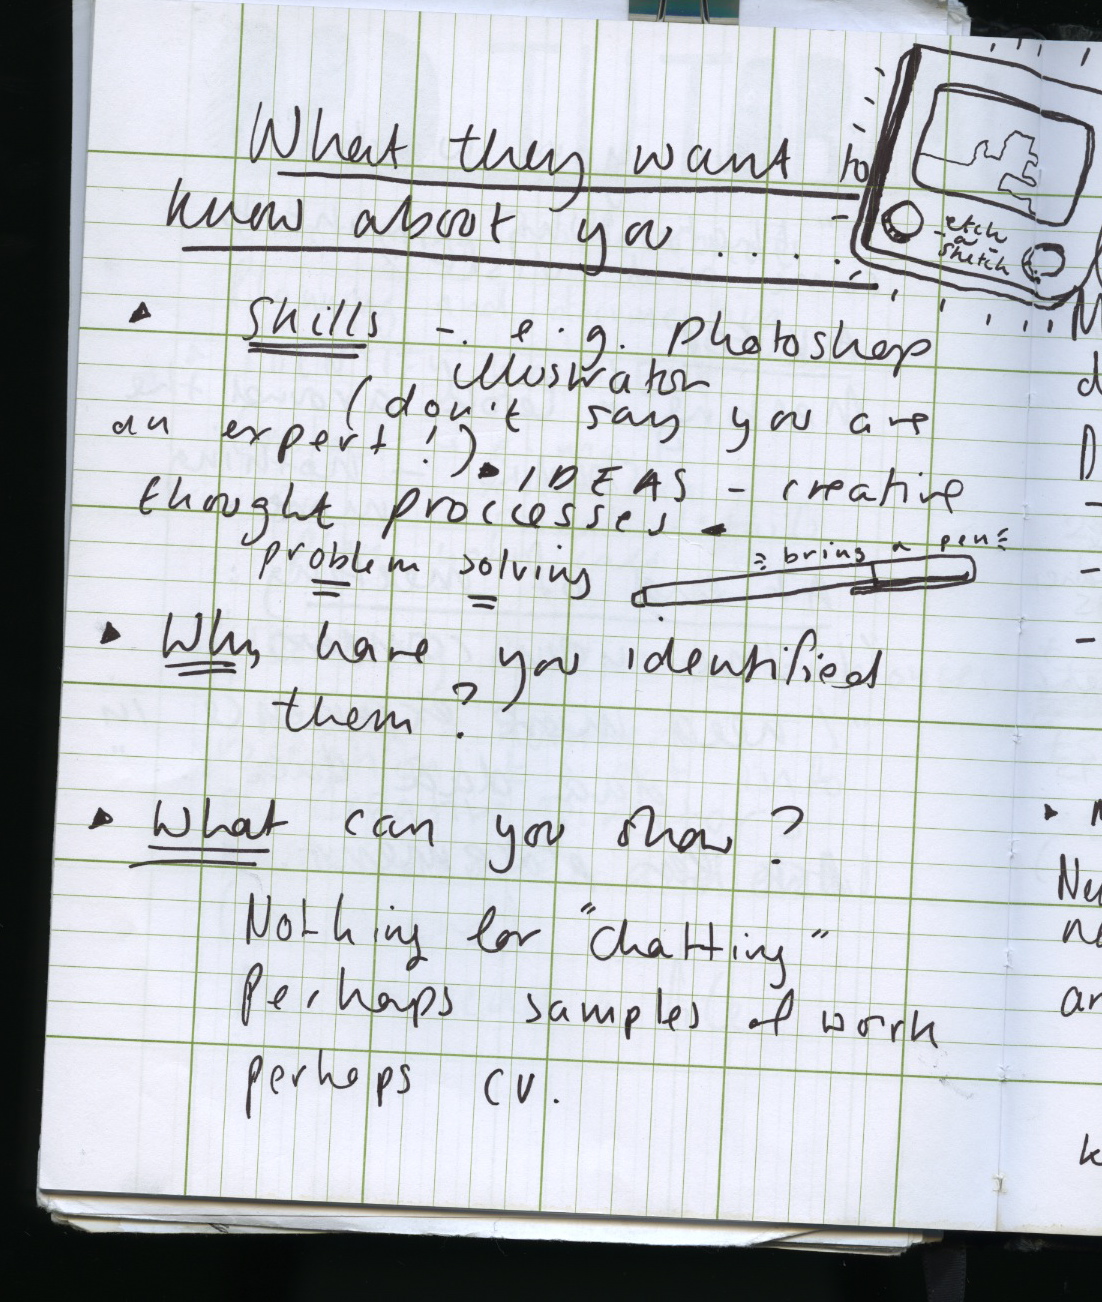 What they want to
know about you . . . . .
etch
-a-
sketch
Skills - e.g. photoshop
illustrator
(don't say you are
an expert!). IDEAS - creative
thought proccesses.
bring a pen
problem solving
Why have you identified
them?
What can you show?
Nothing for "chatting"
Perhaps samples of work
perhaps CV.